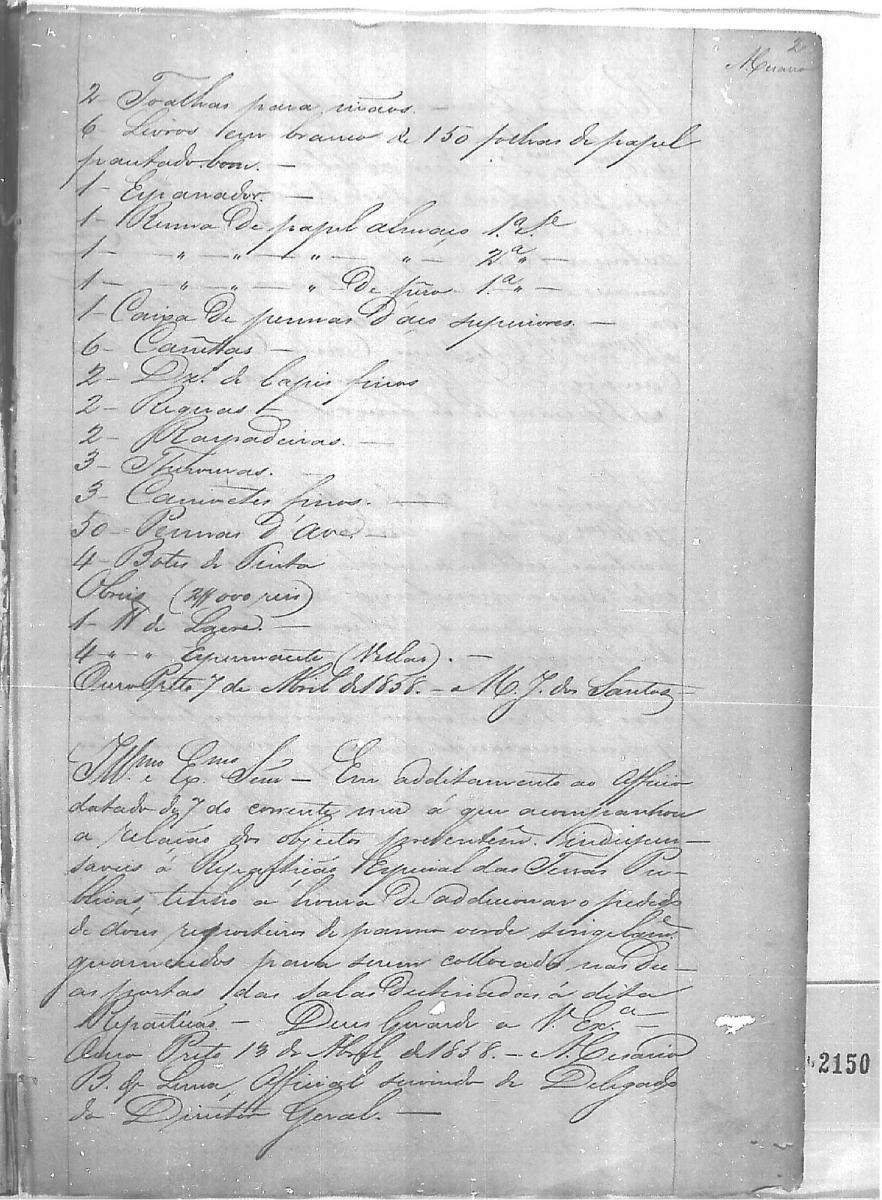 2
A. Cesario
2- Toalhas para mãos.
6- Livros em branco de 150 folhas de papel
pautado bom. —
1- Espanador. —
1- Resma de papel almaço 1.ª
1- — " — " — " — " — 2.ª "
1- — " — " — " de pêso 1.ª " —
1- Caixa de pennas d'aço superiores. —
6- Canettas —
2- Dz.ª de lapis finos
2- Reguas —
2- Raspadeiras. —
3- Thesouras. —
3- Canivetes finos. —
50- Pennas d'Ave. —
4- Botes de Tinta
Obreias (2$000 reis)
1- ℔ de Lacre. —
4 " " Espermacete (Vellas). —
Ouro Preto 7 de Abril de 1858. — M. J. dos Santos —
Ill.mo e Ex.mo Sñr — Em additamento ao Officio
datado de 7 do corrente mez á que acompanhou
a relação dos objectos indispen-
saveis á Repartição Especial das Terras Pu-
blicas, tenho a honra de addicionar o pedido
de dous reposteiros de panno verde singelam.
guarnecidos para serem collocado nas du-
as portas das salas destinadas á dita
Repartição. — Deus Guarde a V. Ex.ª —
Ouro Preto 13 de Abril de 1858. — A. Cesario
B. de Lima, Official servindo de Delegado
do Director Geral. —
2150